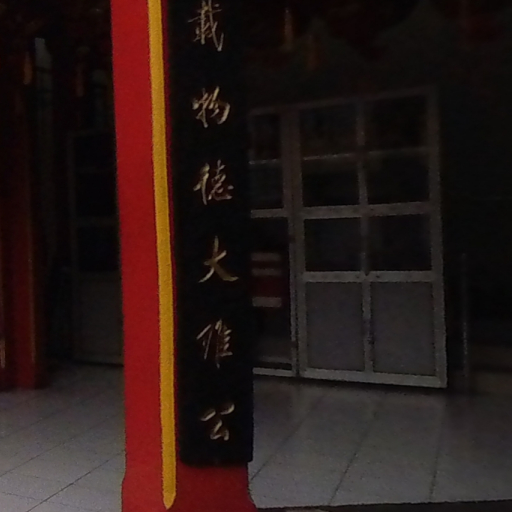 載物德大唯公